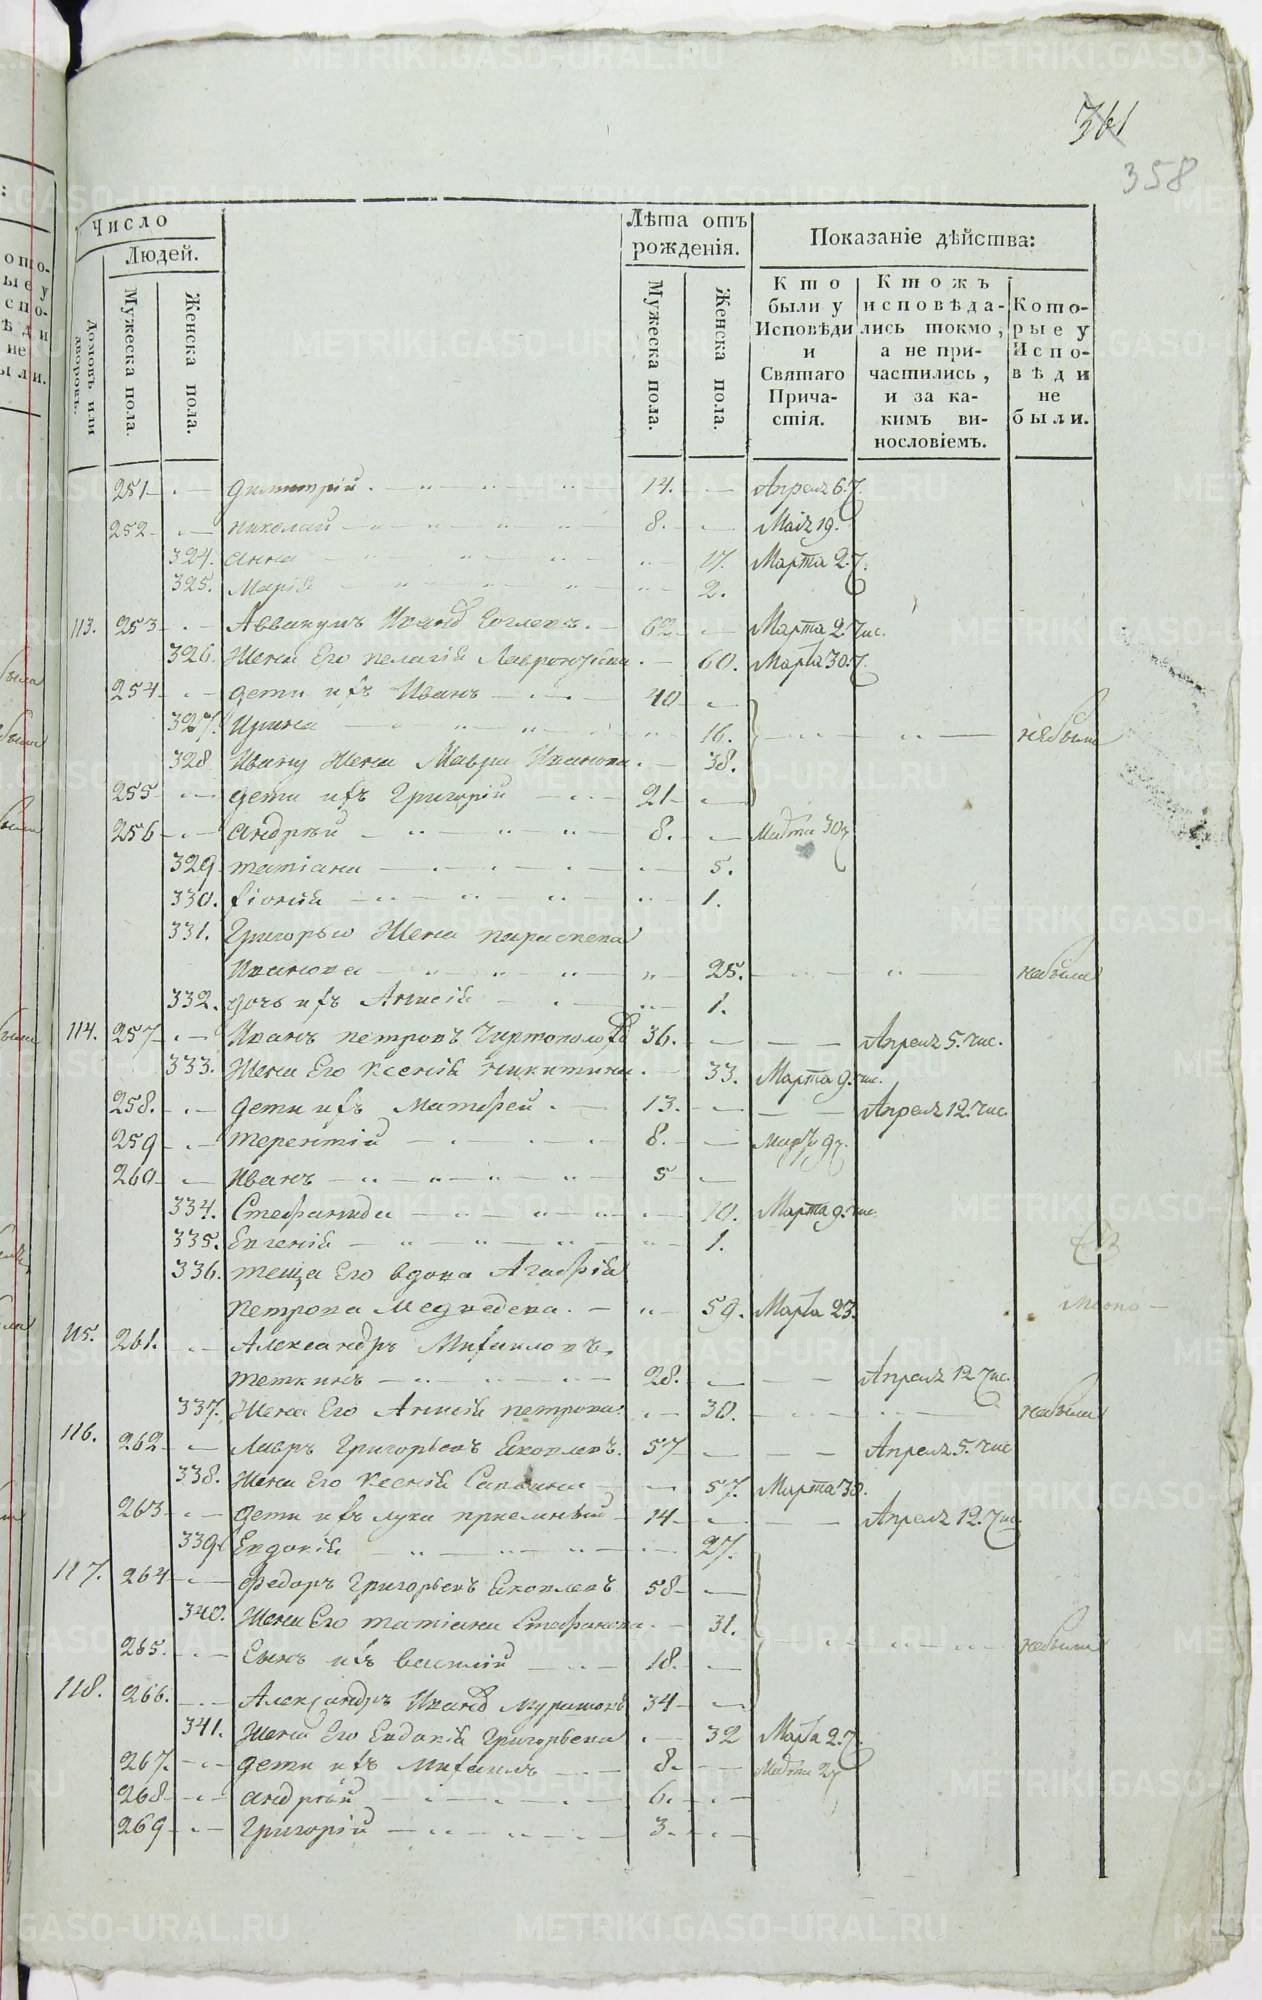 361
358
Число
Людей.
Домовъ или дворовъ.
Мужеска пола.
Женска пола.
Лѣта отъ рожденія.
Мужеска пола.
Женска пола.
Показаніе дѣйства:
Кто были у Исповѣди и Святаго Причастія.
Ктожъ исповѣдались токмо, а не причастились, и за какимъ винословіемъ.
Которые у Исповѣди не были.
251 Димитрій 14. Апреля 6.
252 Николай 8. Маія 19.
324. Анна 17. Марта 27.
325. Марія 2.
113. 253 Аввакумъ Иванов 62 Марта 2 чис.
326 Жена Его Пелагія 60. Марта 30
254 Дети ихъ Иванъ 40
327. Ирина 16. небыли
328 Ивану Жена Мавра Иванова 38.
255 Дети ихъ Григорій 21
256 Андрей 8. Марта 30
329 Татіана 5.
330. 1.
331. Григорью Жена Параскева
Иванова 25. небыла
332. Дочь ихъ Анисія 1.
114. 257 Иванъ Петровъ 36. Апреля 5. чис.
333. Жена Его Ксенія Никитина 33. Марта 9. чис.
258. Дети ихъ Матфей 13. Апреля 12. чис.
259 Терентій 8. Марта 9
260 Иванъ 5
334. Стефанида 10. Марта 9. чис.
335. Евгенія 1.
336. Теща Его вдова Агафія
Петрова Медведева. 59. Марта 23.
115. 261. Александръ Михаиловъ
Теткинъ 28. Апреля 12 чис.
337. Жена Его Анисія Петрова 30. небыла
116. 262 Лавръ Григорьевъ Яковлевъ. 57 Апреля 5. чис
338. Жена Его Ксенія 57. Марта 30.
263 Дети ихъ Лука 14 Апреля 12. чис.
339 Евдокія 27.
117. 264 Федоръ Григорьевъ Яковлевъ 58
340. Жена Его Татіана Стефанова 31.
265. Сынъ ихъ Василій 18. небыли
118. 266. Александръ Иванов 34
341. Жена Его Евдокія Григорьева 32 Марта 27.
267. Дети ихъ Михаилъ 8. Марта 27
268 Андрей 6.
269 Григорій 3.
METRIKI.GASO-URAL.RU